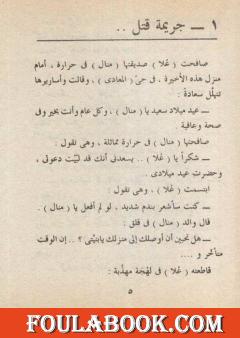 ١ ــ جريمة قتل ..
صافحت ( عُلا ) صديقتها ( منال ) فى حرارة ، أمام
منزل هذه الأخيرة ، فى حىّ ( المعادى ) ، وقالت وأساريرها
تتهلّل سعادةً :
ــ عيد ميلاد سعيد يا ( منال ) ، وكل عام وأنت بخير وفى
صحة وعافية
صافحتها ( منال ) فى حرارة مماثلة ، وهى تقول :
ــ شكرًا يا ( عُلا ) .. يسعدنى أنك قد لبّيت دعوتى ،
وحضرت عيد ميلادى .
ابتسمت ( عُلا ) ، وهى تقول :
ــ كنت سأشعر بندم شديد ، لو لم أفعل يا ( منال ) .
قال والد ( منال ) فى قلق :
ــ هل تحبين أن أوصلك إلى منزلك يابنيّتى ؟ .. إن الوقت
متأخر و ....
قاطعته ( عُلا ) فى لهجة مهذّبة :
٥
FOULABOOK.COM